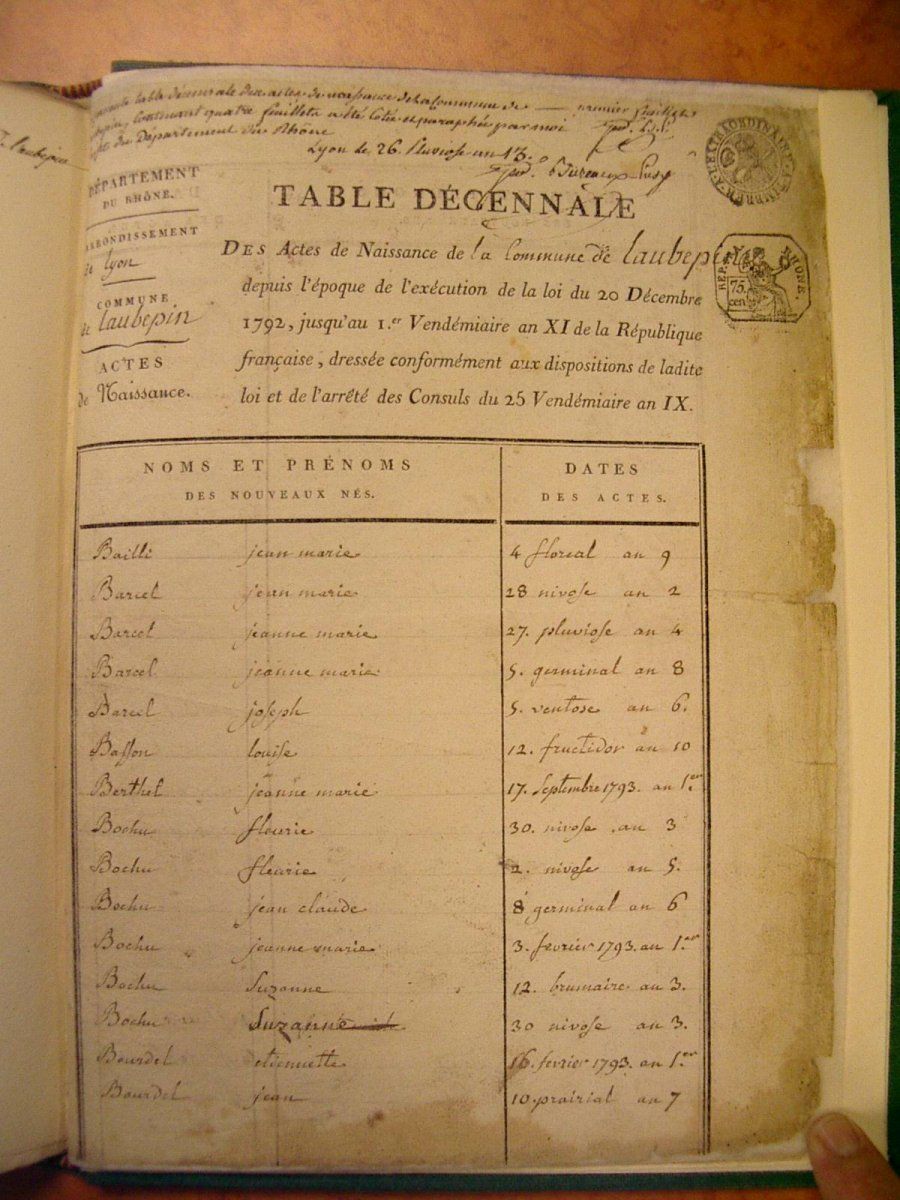 table décennale des actes de naissance de la Commune de — premier feuillet
contenant quatre feuillets a été cotée et paraphée par moi
du Département du Rhône
Lyon le 26. pluviose an 13.
Laubepin
DÉPARTEMENT
DU RHÔNE.
ARRONDISSEMENT
de Lyon
COMMUNE
de Laubépin
ACTES
de Naissance.
TABLE DÉCENNALE
DES Actes de Naissance de la Commune de Laubepin
depuis l'époque de l'exécution de la loi du 20 Décembre
1792, jusqu'au 1.er Vendémiaire an XI de la République
française, dressée conformément aux dispositions de ladite
loi et de l'arrêté des Consuls du 25 Vendémiaire an IX.
REP. FRA
75.
cen
RHONE.
NOMS ET PRÉNOMS DATES
DES NOUVEAUX NÉS. DES ACTES.
Bailli jean marie 4 floreal an 9
Barcel jean marie 28 nivose an 2
Barcel jeanne marie 27. pluviose an 4
Barcel jeanne marie 5. germinal an 8
Barcel joseph 5. ventose an 6.
Basson louise 12. fructidor an 10
Berthet jeanne marie 17. Septembre 1793. an 1.er
Bochu fleurie 30. nivose an 3
Bochu fleurie 2. nivose an 5.
Bochu jean claude 8 germinal an 6
Bochu jeanne marie 3. fevrier 1793. an 1.er
Bochu Suzanne 12. brumaire an 3.
Bochu Suzanne 30 nivose an 3.
Bourdel 16. fevrier 1793. an 1.er
Bourdel jean 10. prairial an 7